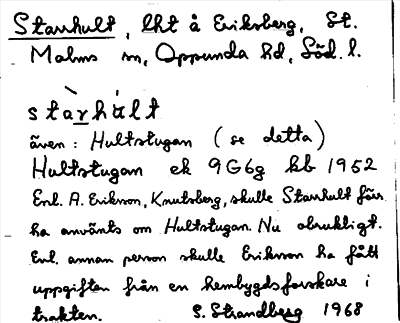 Starrhult, lht å Eriksberg, St.
Malms sn, Oppunda hd, Söd. l.
stàrhúlt
även: Hultstugan (se detta)
Hultstugan ek 9G6g kb 1952
Enl. A. Erikson, Knutsberg, skulle Starrhult förr
ha använts om Hultstugan. Nu obrukligt.
Enl. annan person skulle Erikson ha fått
uppgiften från en hembygdsforskare i
trakten. S. Strandberg 1968